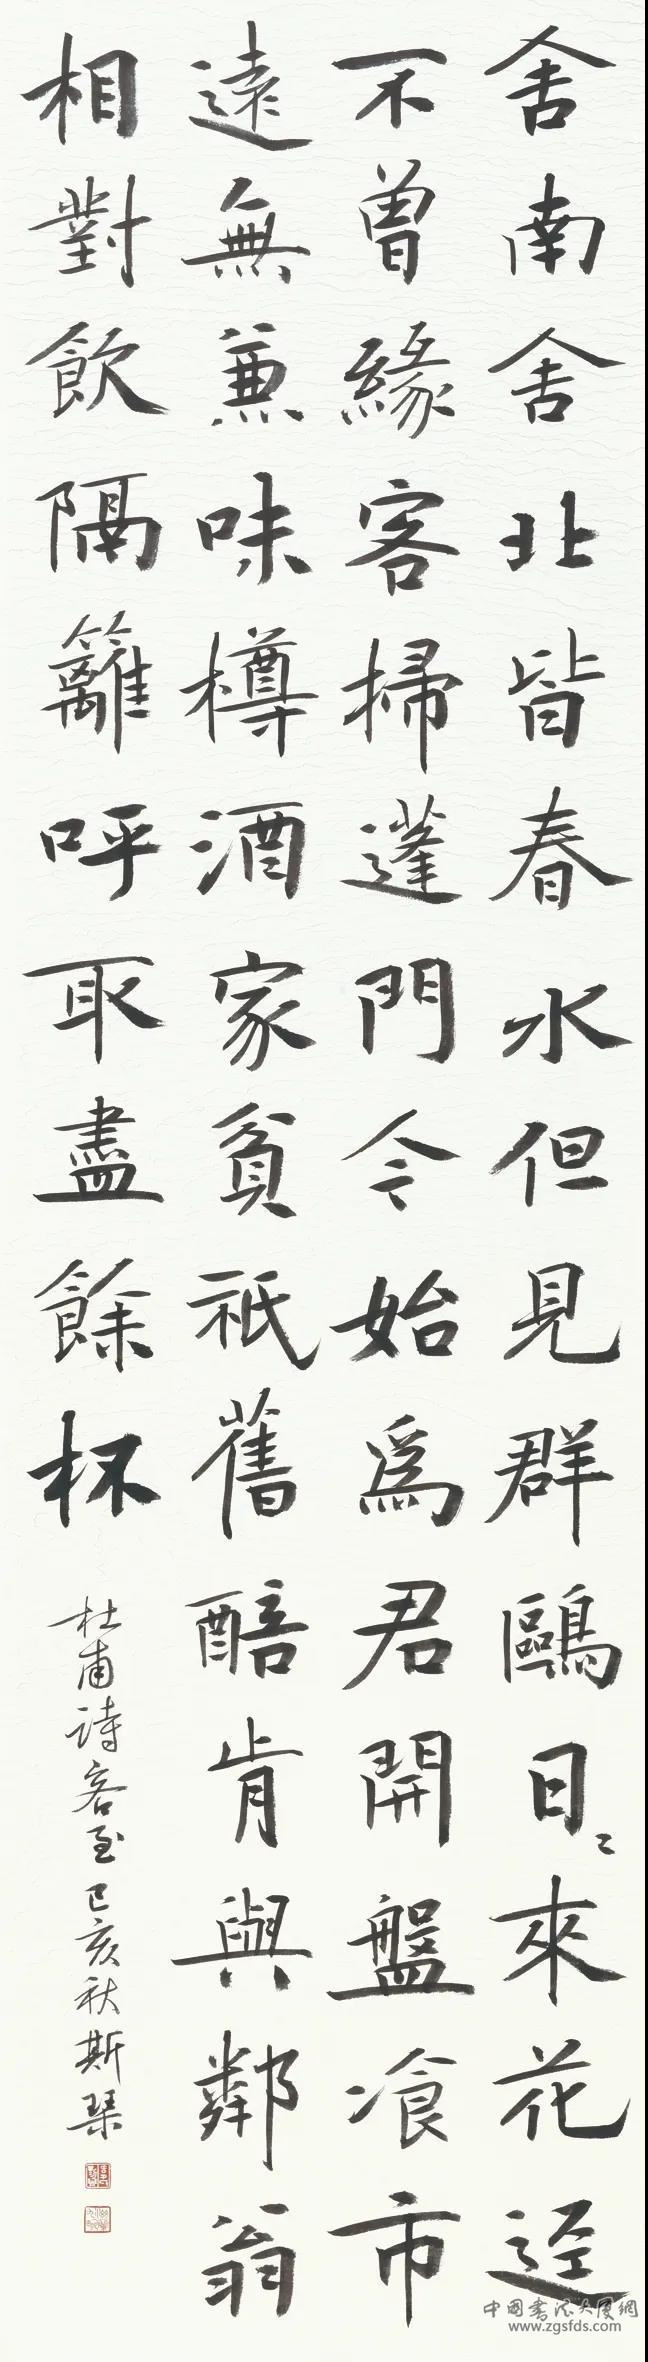 舍南舍北皆春水但見群鷗日〻來花逕
不曾緣客掃蓬門今始為君開盤飡市
遠無兼味樽酒家貧祇舊醅肯與鄰翁
相對飲隔籬呼取盡餘杯
杜甫詩客至己亥秋斯琴
中國書法大廈網
www.zgsfds.com